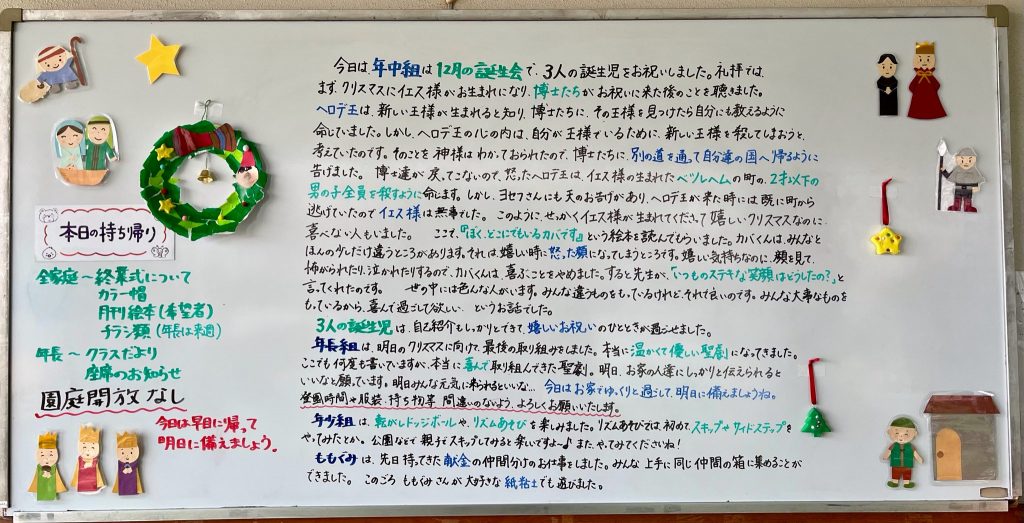 本日の持ち帰り
全家庭～終業式について
カラー帽
月刊絵本(希望者)
チラシ類(年長は来週)
年長～クラスだより
座席のお知らせ
園庭開放なし
今日は早目に帰って
明日に備えましょう。
今日は、年中組は12月の誕生会で、3人の誕生児をお祝いしました。礼拝では、
まず、クリスマスにイエス様がお生まれになり、博士たちがお祝いに来た後のことを聴きました。
ヘロデ王は、新しい王様が生まれると知り、博士たちに、その王様を見つけたら自分にも教えるように
命じていました。しかし、ヘロデ王の心の内は、自分が王様でいるために、新しい王様を殺してしまおうと、
考えていたのです。そのことを神様はわかっておられたので、博士たちに、別の道を通って自分達の国へ帰るように
告げました。博士達が戻ってこないので、怒ったヘロデ王は、イエス様の生まれたベツレヘムの町の、2才以下の
男の子全員を殺すように命じます。しかし、ヨセフさんにも天のお告げがあり、ヘロデ王が来た時には既に町から
逃げていたのでイエス様は無事でした。このように、せっかくイエス様が生まれてくださって嬉しいクリスマスなのに、
喜べない人もいました。ここで、『ぼく、どこにでもいるカバです』という絵本を読んでもらいました。カバくんは、みんなと
ほんの少しだけ違うところがあります。それは、嬉しい時に怒った顔になってしまうところです。嬉しい気持ちなのに、顔を見て、
怖がられたり、泣かれたりするので、カバくんは、喜ぶことをやめました。すると先生が、「いつものステキな笑顔はどうしたの?」と
言ってくれたのです。世の中には色んな人がいます。みんな違うものをもっているけれど、それで良いのです。みんな大事なものを
もっているから、喜んで過ごして欲しい、というお話でした。
3人の誕生児は、自己紹介もしっかりとできて、嬉しいお祝いのひとときが過ごせました。
年長組は、明日のクリスマスに向けて、最後の取り組みをしました。本当に温かくて優しい聖劇になってきました。
ここでも何度も書いていますが、本当に喜んで取り組んできた聖劇。明日、お家の人達にしっかりと伝えられると
いいなと願っています。明日みんな元気に来られるといいな… 今日はお家でゆっくりと過ごして、明日に備えましょうね。
登園時間や服装、持ち物等 間違いのないよう、よろしくお願いいたします。
年少組は、転がしドッジボールや、リズムあそびを楽しみました。リズムあそびでは、初めて、スキップやサイドステップを
やってみたとか。公園などで親子でスキップしてみると楽しいですよ～♪また、やってみてくださいね!
ももぐみは、先日持ってきた献金の仲間分けのお仕事をしました。みんな上手に同じ仲間の箱に集めることが
できました。このごろ ももぐみさんが大好きな紙粘土でも遊びました。